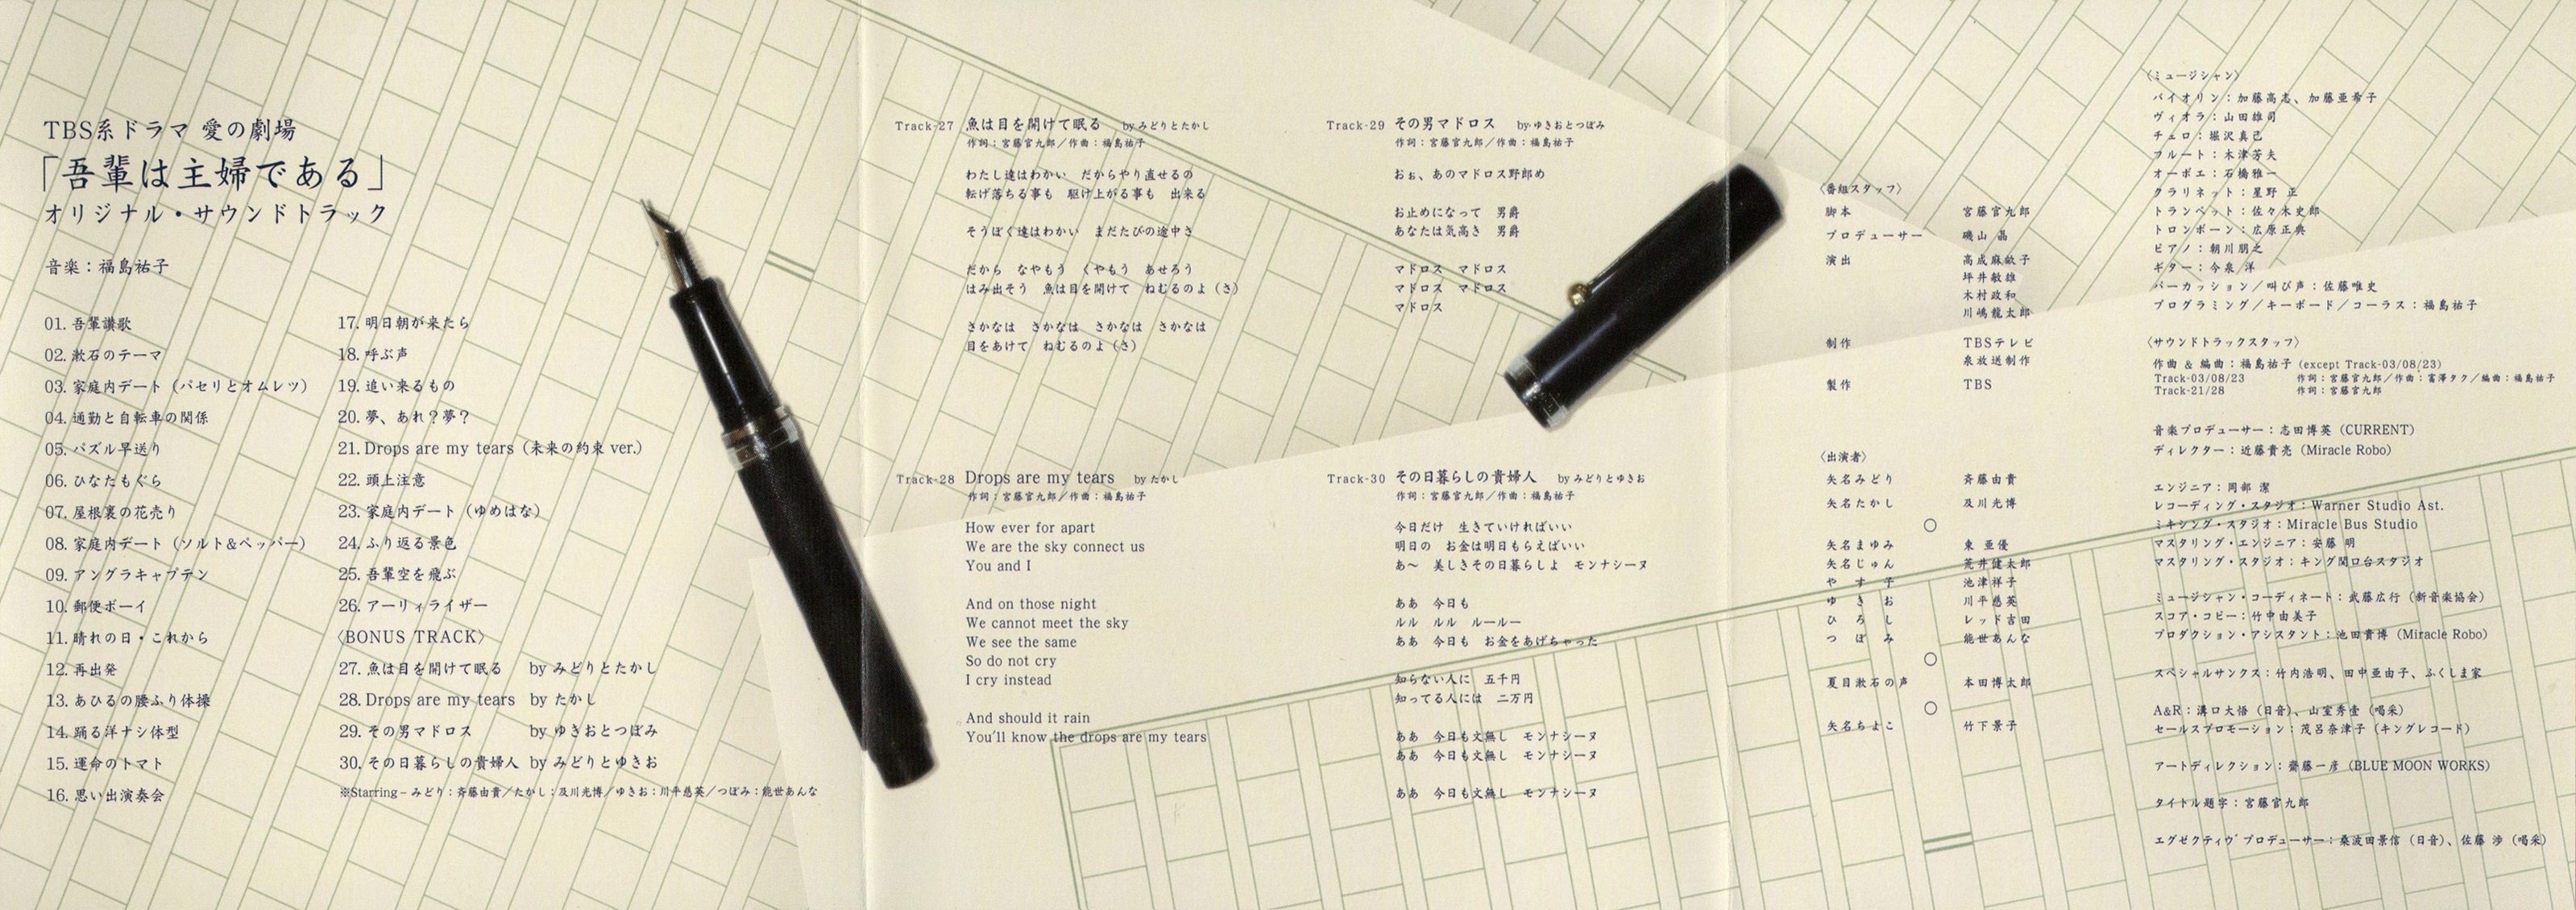 TBS系ドラマ 愛の劇場
「吾輩は主婦である」
オリジナル・サウンドトラック
音楽：福島祐子
01. 吾輩讃歌
02. 漱石のテーマ
03. 家庭内デート（パセリとオムレツ）
04. 通勤と自転車の関係
05. パズル早送り
06. ひなたもぐら
07. 屋根裏の花売り
08. 家庭内デート（ソルト&ペッパー）
09. アングラキャプテン
10. 郵便ボーイ
11. 晴れの日・これから
12. 再出発
13. あひるの腰ふり体操
14. 踊る洋ナシ体型
15. 運命のトマト
16. 思い出演奏会
17. 明日朝が来たら
18. 呼ぶ声
19. 追い来るもの
20. 夢、あれ？夢？
21. Drops are my tears（未来の約束 ver.）
22. 頭上注意
23. 家庭内デート（ゆめはな）
24. ふり返る景色
25. 吾輩空を飛ぶ
26. アーリィライザー
〈BONUS TRACK〉
27. 魚は目を開けて眠る by みどりとたかし
28. Drops are my tears by たかし
29. その男マドロス by ゆきおとつぼみ
30. その日暮らしの貴婦人 by みどりとゆきお
※Starring－みどり：斉藤由貴／たかし：及川光博／ゆきお：川平慈英／つぼみ：能世あんな
Track-27 魚は目を開けて眠る by みどりとたかし
作詞：宮藤官九郎／作曲：福島祐子
わたし達はわかい だからやり直せるの
転げ落ちる事も 駆け上がる事も 出来る
そうぼく達はわかい まだたびの途中さ
だから なやもう くやもう あせろう
はみ出そう 魚は目を開けて ねむるのよ（さ）
さかなは さかなは さかなは さかなは
目をあけて ねむるのよ（さ）
Track-28 Drops are my tears by たかし
作詞：宮藤官九郎／作曲：福島祐子
How ever for apart
We are the sky connect us
You and I
And on those night
We cannot meet the sky
We see the same
So do not cry
I cry instead
And should it rain
You'll know the drops are my tears
Track-29 その男マドロス by ゆきおとつぼみ
作詞：宮藤官九郎／作曲：福島祐子
おぉ、あのマドロス野郎め
お止めになって 男爵
あなたは気高き 男爵
マドロス マドロス
マドロス マドロス
マドロス
Track-30 その日暮らしの貴婦人 by みどりとゆきお
作詞：宮藤官九郎／作曲：福島祐子
今日だけ 生きていければいい
明日の お金は明日もらえばいい
あ〜 美しきその日暮らしよ モンナシーヌ
ああ 今日も
ルル ルル ルールー
ああ 今日も お金をあげちゃった
知らない人に 五千円
知ってる人には 二万円
ああ 今日も文無し モンナシーヌ
ああ 今日も文無し モンナシーヌ
ああ 今日も文無し モンナシーヌ
〈番組スタッフ〉
脚本 宮藤官九郎
プロデューサー 磯山 晶
演出 高成麻畝子
坪井敏雄
木村政和
川嶋龍太郎
制作 TBSテレビ
泉放送制作
製作 TBS
〈出演者〉
矢名みどり 斉藤由貴
矢名たかし 及川光博
○
矢名まゆみ 東 亜優
矢名じゅん 荒井健太郎
やす子 池津祥子
ゆきお 川平慈英
ひろし レッド吉田
つぼみ 能世あんな
○
夏目漱石の声 本田博太郎
○
矢名ちよこ 竹下景子
〈ミュージシャン〉
バイオリン：加藤高志、加藤亜希子
ヴィオラ：山田雄司
チェロ：堀沢真己
フルート：木津芳夫
オーボエ：石橋雅一
クラリネット：星野 正
トランペット：佐々木史郎
トロンボーン：広原正典
ピアノ：朝川朋之
ギター：今泉 洋
パーカッション／叫び声：佐藤唯史
プログラミング／キーボード／コーラス：福島祐子
〈サウンドトラックスタッフ〉
作曲 & 編曲：福島祐子 (except Track-03/08/23)
Track-03/08/23 作詞：宮藤官九郎／作曲：富澤タク／編曲：福島祐子
Track-21/28 作詞：宮藤官九郎
音楽プロデューサー：志田博英（CURRENT）
ディレクター：近藤貴亮（Miracle Robo）
エンジニア：岡部 潔
レコーディング・スタジオ：Warner Studio Ast.
ミキシング・スタジオ：Miracle Bus Studio
マスタリング・エンジニア：安藤 明
マスタリング・スタジオ：キング関口台スタジオ
ミュージシャン・コーディネート：武藤広行（新音楽協会）
スコア・コピー：竹中由美子
プロダクション・アシスタント：池田貴博（Miracle Robo）
スペシャルサンクス：竹内浩明、田中亜由子、ふくしま家
A&R：溝口大悟（日音）、山室秀壹（喝采）
セールスプロモーション：茂呂奈津子（キングレコード）
アートディレクション：齋藤一彦（BLUE MOON WORKS）
タイトル題字：宮藤官九郎
エグゼクティヴ プロデューサー：桑波田景信（日音）、佐藤 渉（喝采）